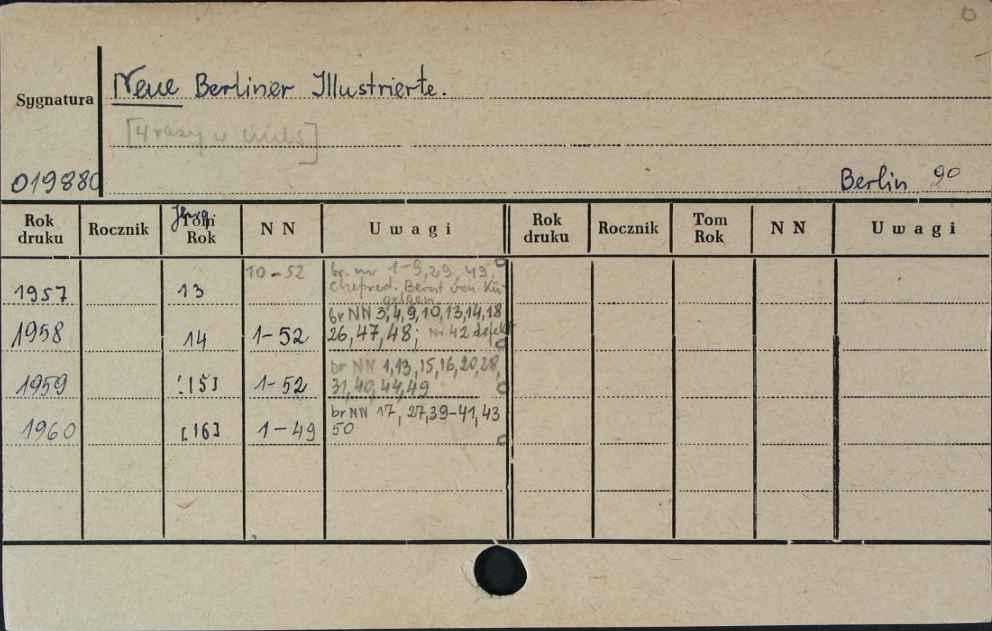 0
Sygnatura
Neue Berliner Illustrierte.
[4 razy w
019880
Berlin 90
Rok druku Rocznik Tom Rok Jhrg. N N Uwagi Rok druku Rocznik Tom Rok N N Uwagi
1957 13 10-52 br. nr 1-9, 29, 49.
Chefred. Bernt von Kü-
gelgen
1958 14 1-52 br NN 3,4,9,10,13,14,18
26,47,48; Nr 42 defekt
1959 [15] 1-52 br NN 1,13,15,16,20,28,
31,40,44,49
1960 [16] 1-49 br NN 17, 27,39-41,43
50